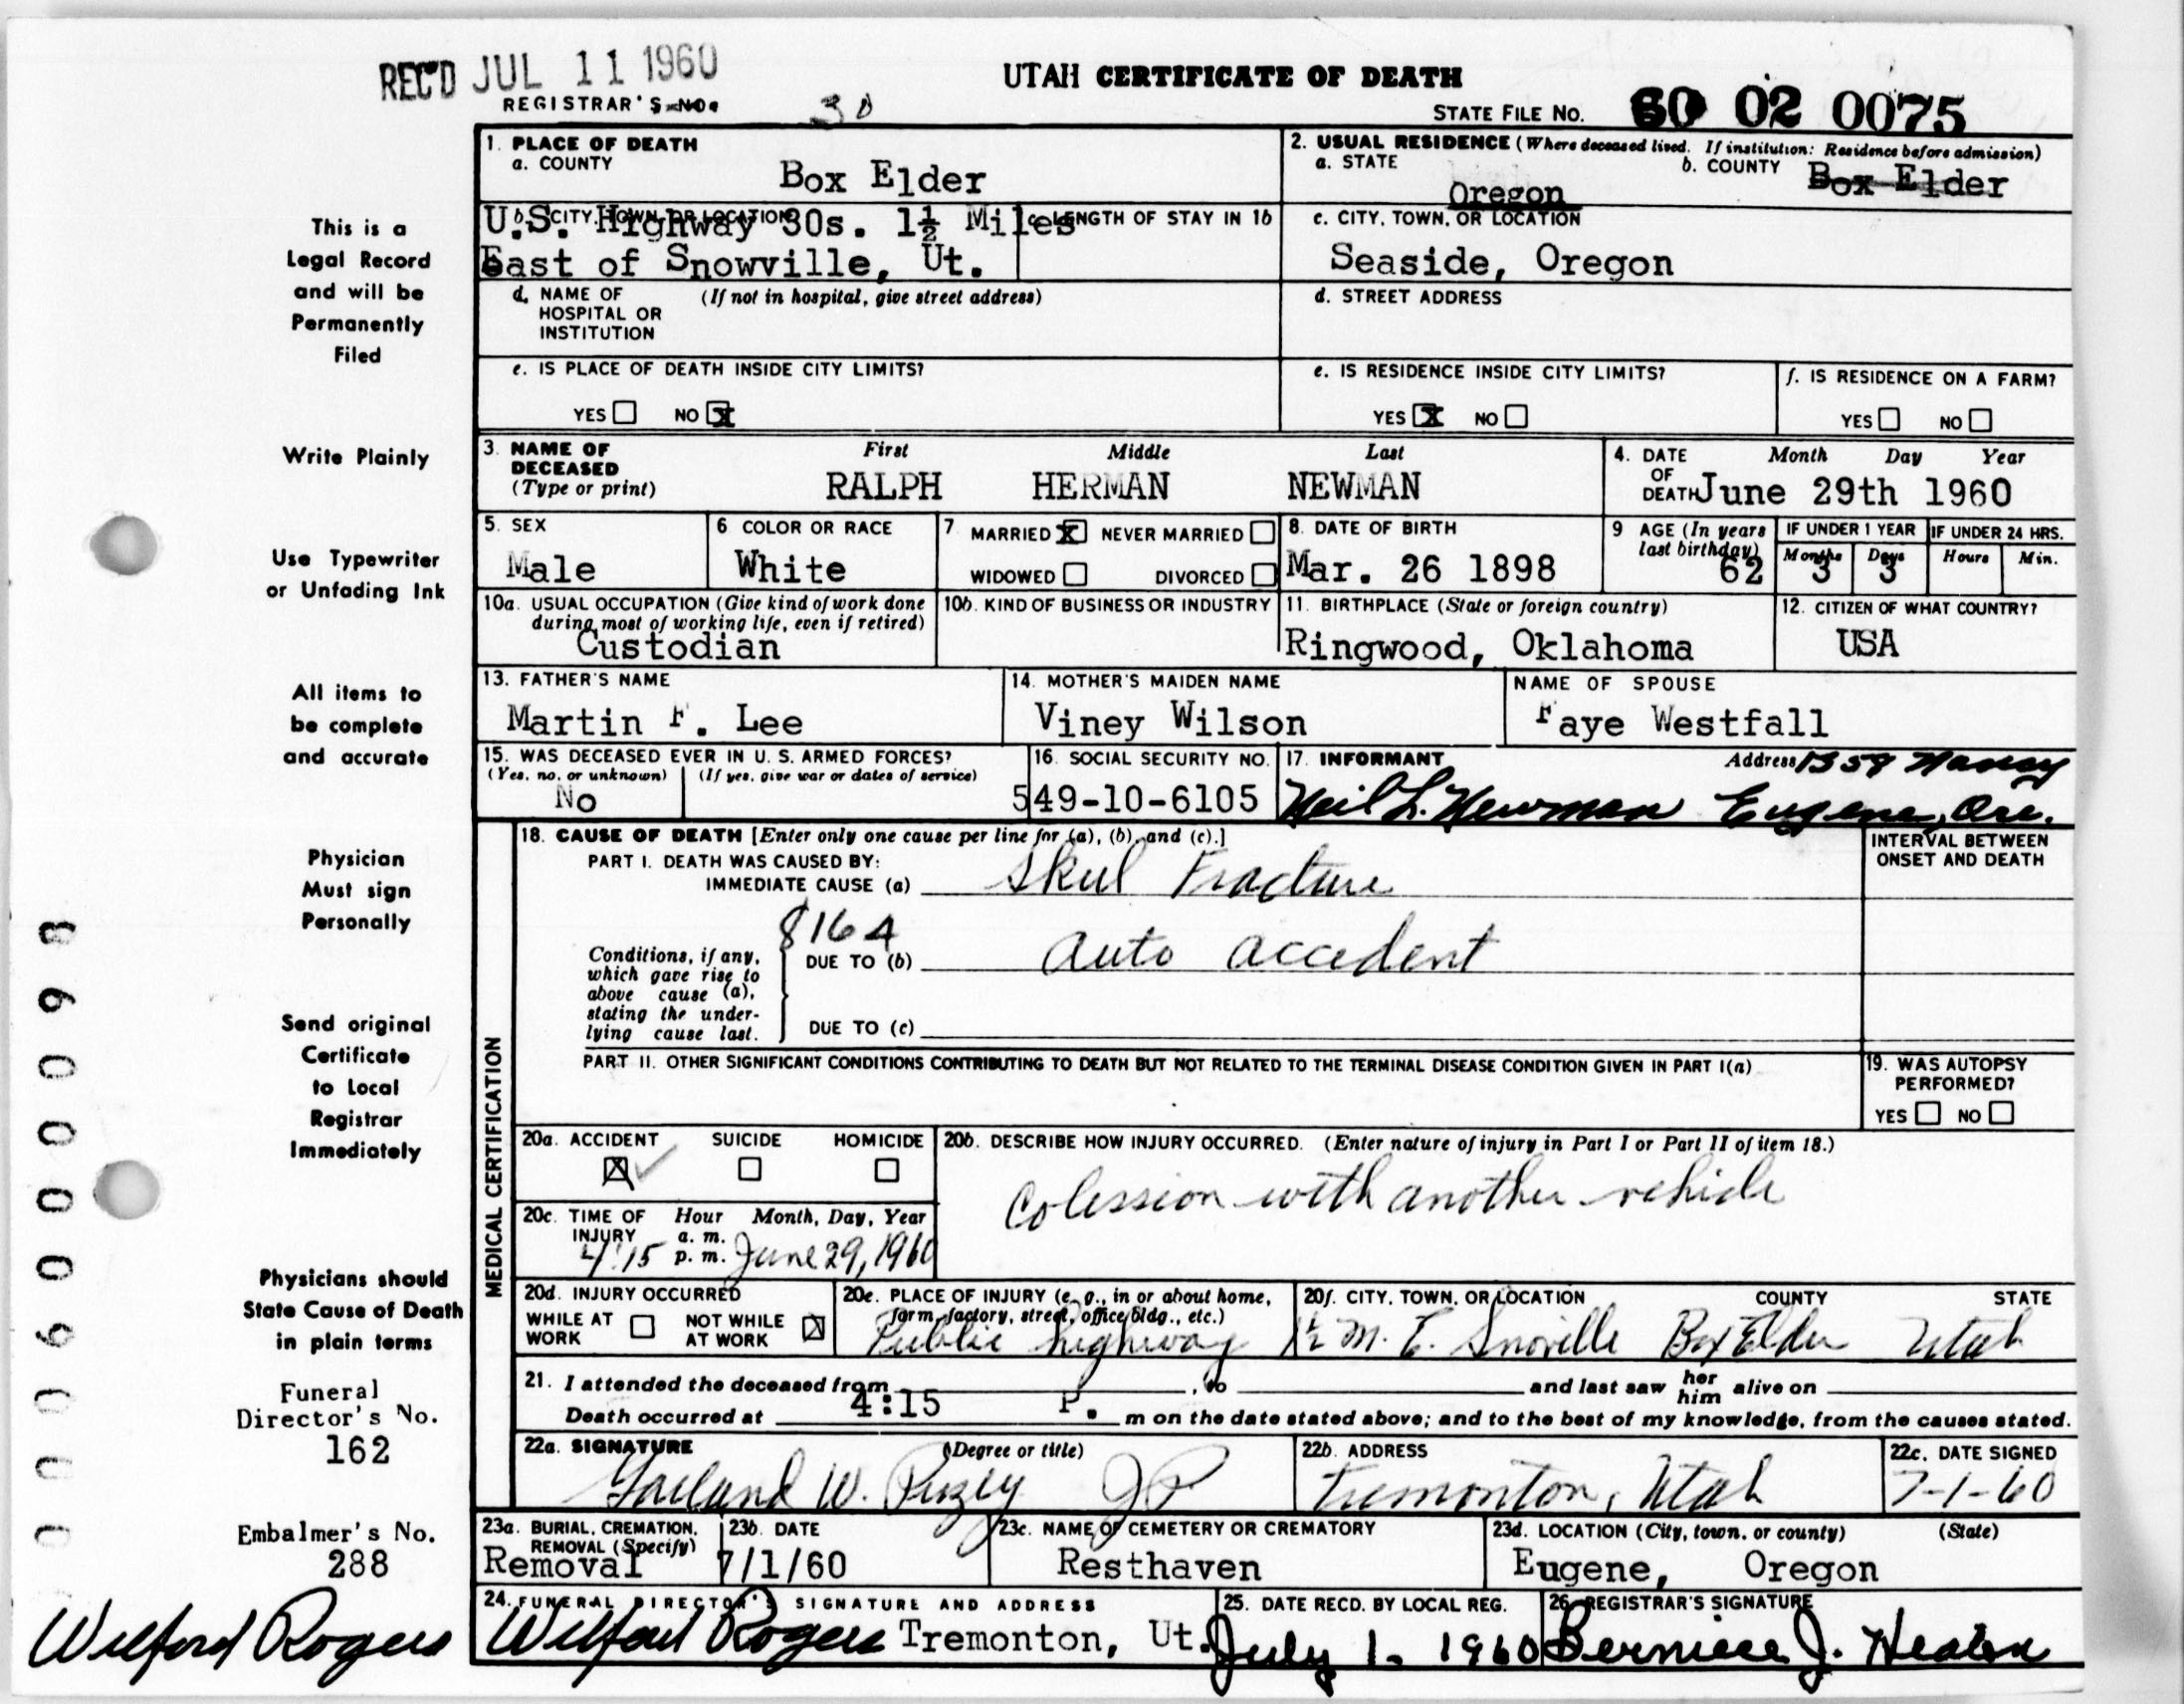 REC'D JUL 11 1960
UTAH CERTIFICATE OF DEATH
REGISTRAR'S NO. 30
STATE FILE NO. 60 02 0075
1. PLACE OF DEATH
a. COUNTY
Box Elder
2. USUAL RESIDENCE (Where deceased lived. If institution: Residence before admission)
a. STATE
Oregon
b. COUNTY Box Elder
b. CITY, TOWN, OR LOCATION
U.S. Highway 30s. 1½ Miles
East of Snowville, Ut.
c. LENGTH OF STAY IN 1b
c. CITY, TOWN, OR LOCATION
Seaside, Oregon
d. NAME OF HOSPITAL OR INSTITUTION (If not in hospital, give street address)
d. STREET ADDRESS
e. IS PLACE OF DEATH INSIDE CITY LIMITS?
YES NO X
e. IS RESIDENCE INSIDE CITY LIMITS?
YES X NO
f. IS RESIDENCE ON A FARM?
YES NO
3. NAME OF DECEASED (Type or print)
First Middle Last
RALPH HERMAN NEWMAN
4. DATE OF DEATH Month Day Year
June 29th 1960
5. SEX
Male
6 COLOR OR RACE
White
7 MARRIED X NEVER MARRIED
WIDOWED DIVORCED
8. DATE OF BIRTH
Mar. 26 1898
9 AGE (In years last birthday)
62
IF UNDER 1 YEAR
Months 3 Days 3
IF UNDER 24 HRS.
Hours Min.
10a. USUAL OCCUPATION (Give kind of work done during most of working life, even if retired)
Custodian
10b. KIND OF BUSINESS OR INDUSTRY
11. BIRTHPLACE (State or foreign country)
Ringwood, Oklahoma
12. CITIZEN OF WHAT COUNTRY?
USA
13. FATHER'S NAME
Martin F. Lee
14. MOTHER'S MAIDEN NAME
Viney Wilson
NAME OF SPOUSE
Faye Westfall
15. WAS DECEASED EVER IN U. S. ARMED FORCES?
(Yes, no, or unknown) (If yes, give war or dates of service)
No
16. SOCIAL SECURITY NO.
549-10-6105
17. INFORMANT Address 1359
Neil L. Newman Eugene, Ore.
MEDICAL CERTIFICATION
18. CAUSE OF DEATH [Enter only one cause per line for (a), (b), and (c).]
PART I. DEATH WAS CAUSED BY:
IMMEDIATE CAUSE (a) Skul Fracture
8164
Conditions, if any, which gave rise to above cause (a), stating the underlying cause last.
DUE TO (b) auto accedent
DUE TO (c)
INTERVAL BETWEEN ONSET AND DEATH
PART II. OTHER SIGNIFICANT CONDITIONS CONTRIBUTING TO DEATH BUT NOT RELATED TO THE TERMINAL DISEASE CONDITION GIVEN IN PART I(a)
19. WAS AUTOPSY PERFORMED?
YES NO
20a. ACCIDENT SUICIDE HOMICIDE
X
20b. DESCRIBE HOW INJURY OCCURRED. (Enter nature of injury in Part I or Part II of item 18.)
Colession with another vehicle
20c. TIME OF INJURY Hour Month, Day, Year
a. m.
4:15 p. m. June 29, 1960
20d. INJURY OCCURRED
WHILE AT WORK NOT WHILE AT WORK X
20e. PLACE OF INJURY (e. g., in or about home, farm, factory, street, office bldg., etc.)
Public highway
20f. CITY, TOWN, OR LOCATION COUNTY STATE
1½ M. E. Snoville Box Elder Utah
21. I attended the deceased from , to and last saw her him alive on
Death occurred at 4:15 P. m on the date stated above; and to the best of my knowledge, from the causes stated.
22a. SIGNATURE (Degree or title)
Garland W. JP
22b. ADDRESS
Tremonton, Utah
22c. DATE SIGNED
7-1-60
23a. BURIAL, CREMATION, REMOVAL (Specify)
Removal
23b. DATE
7/1/60
23c. NAME OF CEMETERY OR CREMATORY
Resthaven
23d. LOCATION (City, town, or county) (State)
Eugene, Oregon
24. FUNERAL DIRECTOR'S SIGNATURE AND ADDRESS
Wilford Rogers Tremonton, Ut.
25. DATE RECD. BY LOCAL REG.
July 1, 1960
26. REGISTRAR'S SIGNATURE
Berniece J.
This is a
Legal Record
and will be
Permanently
Filed
Write Plainly
Use Typewriter
or Unfading Ink
All items to
be complete
and accurate
Physician
Must sign
Personally
Send original
Certificate
to Local
Registrar
Immediately
Physicians should
State Cause of Death
in plain terms
Funeral
Director's No.
162
Embalmer's No.
288
Wilford Rogers